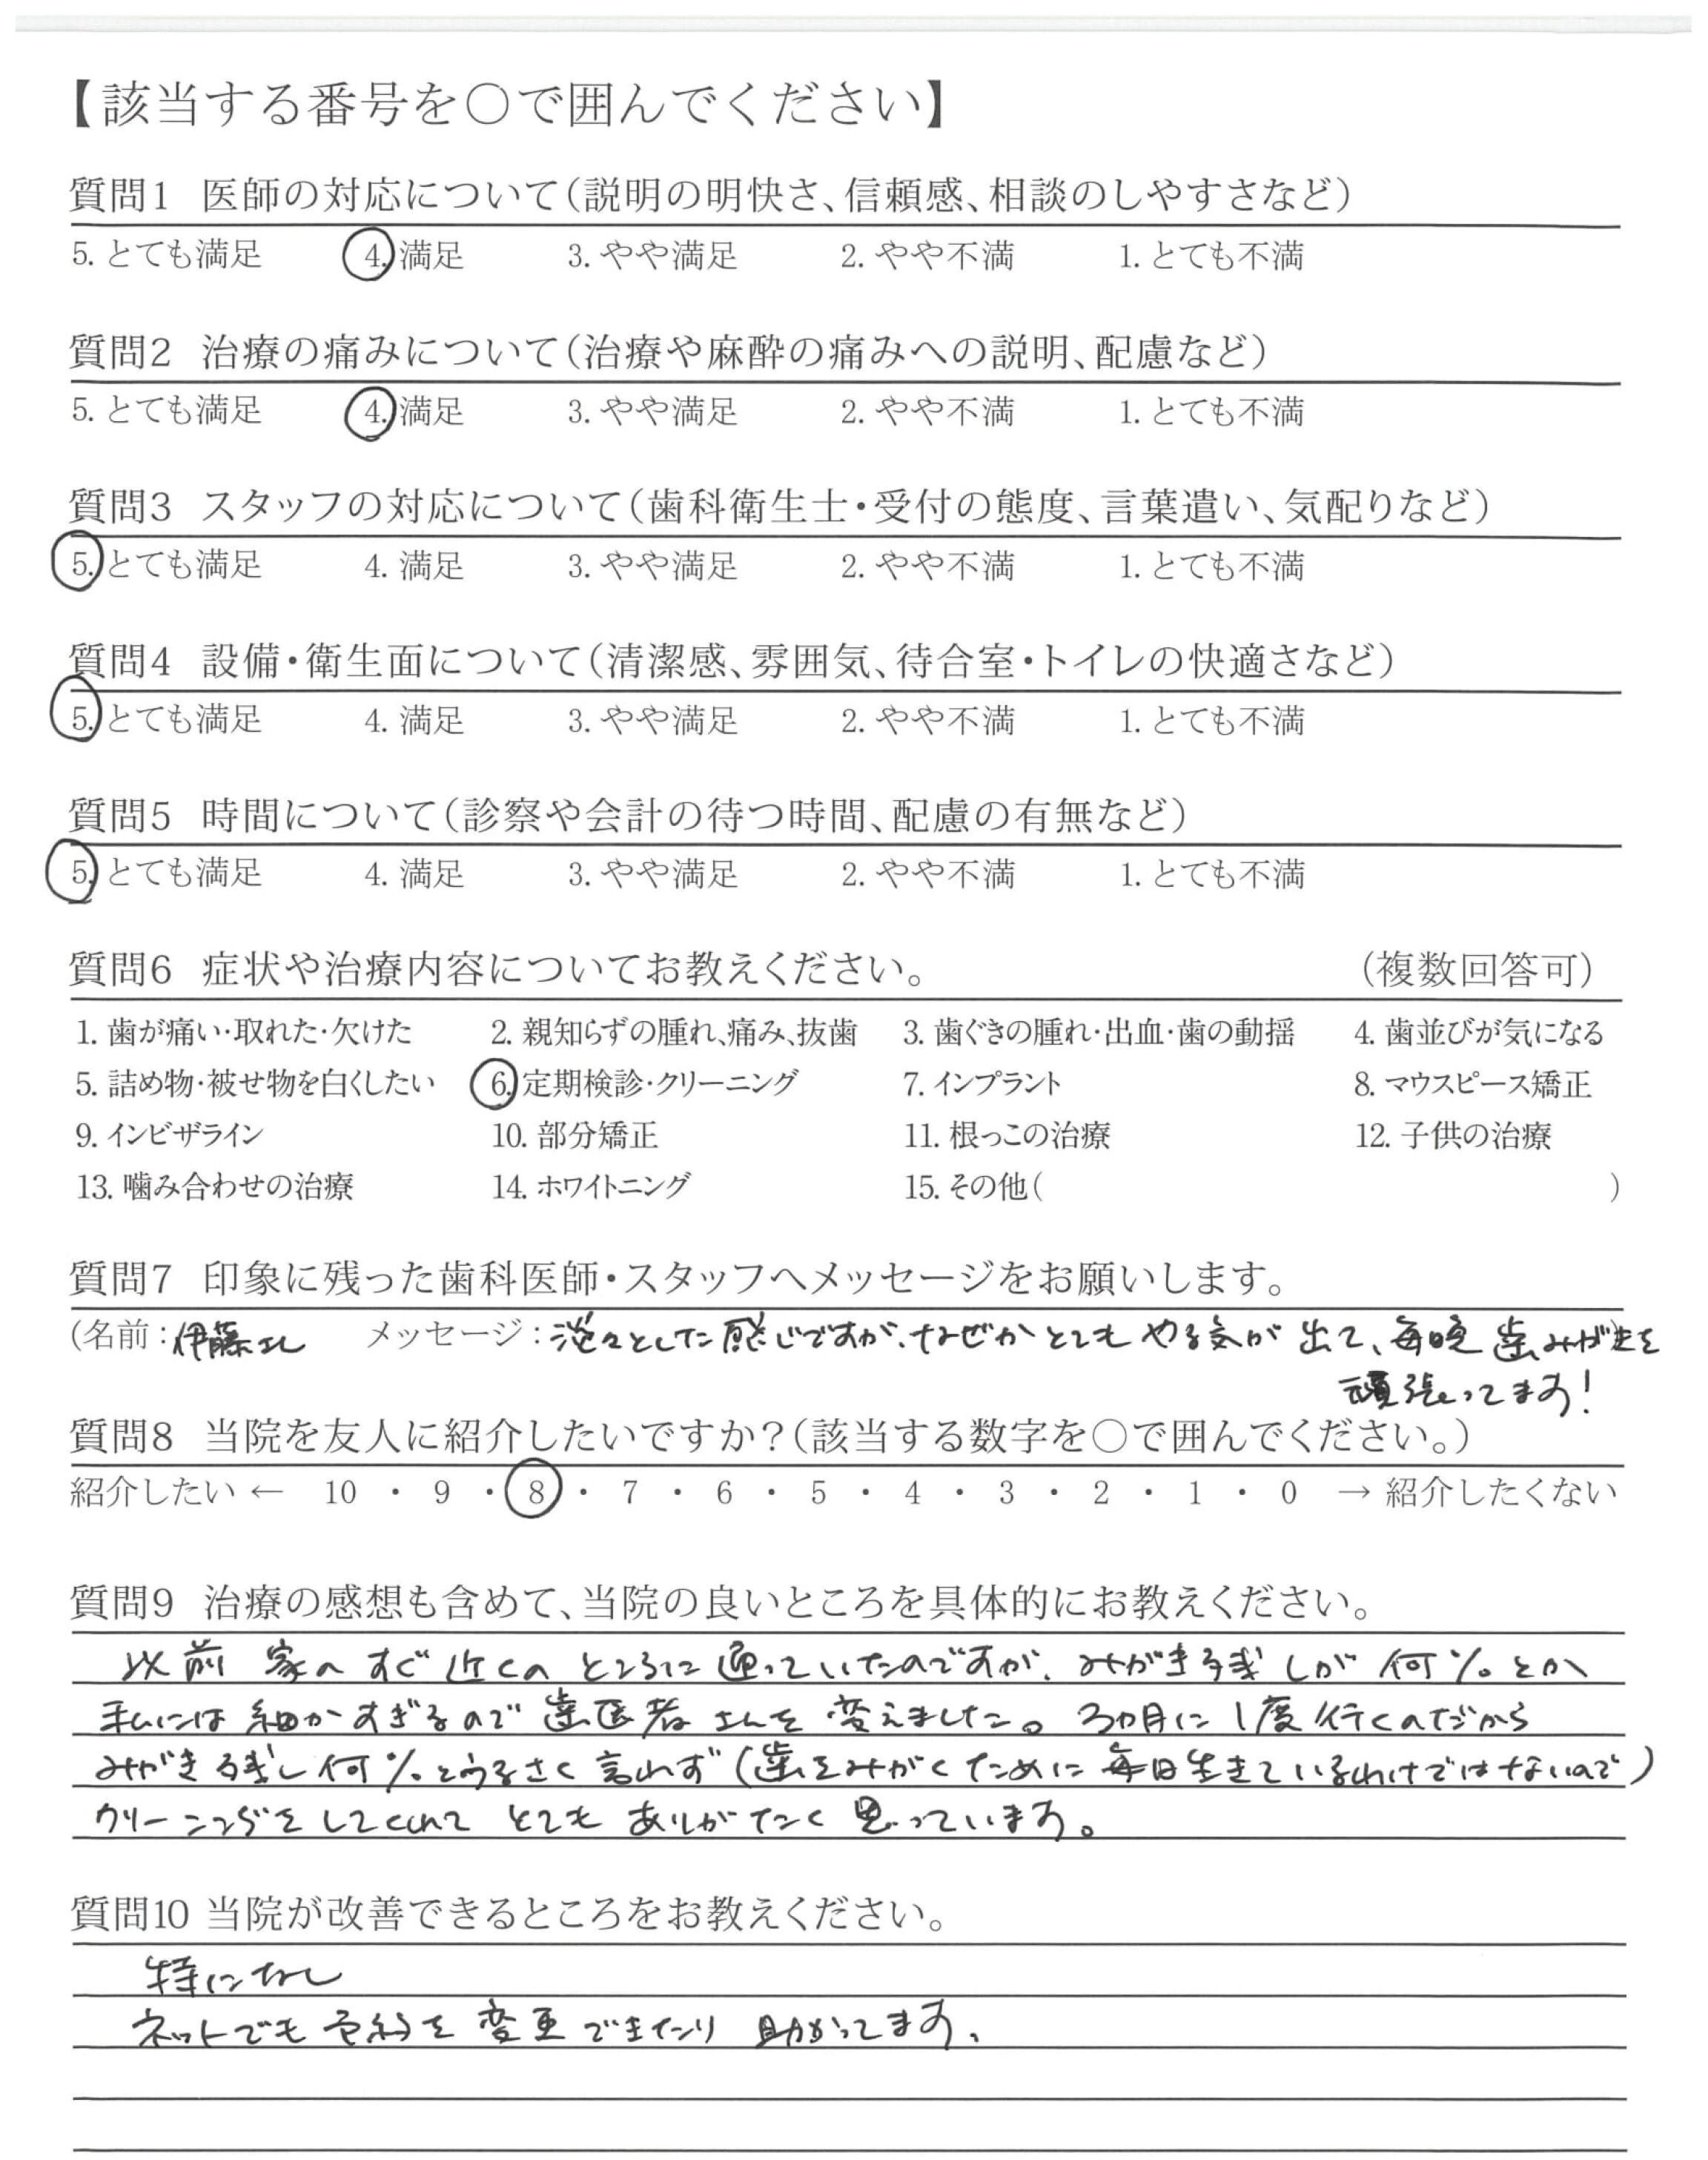 【該当する番号を○で囲んでください】
質問1 医師の対応について(説明の明快さ、信頼感、相談のしやすさなど)
5. とても満足 4. 満足 3. やや満足 2. やや不満 1. とても不満
質問2 治療の痛みについて(治療や麻酔の痛みへの説明、配慮など)
5. とても満足 4. 満足 3. やや満足 2. やや不満 1. とても不満
質問3 スタッフの対応について(歯科衛生士・受付の態度、言葉遣い、気配りなど)
5. とても満足 4. 満足 3. やや満足 2. やや不満 1. とても不満
質問4 設備・衛生面について(清潔感、雰囲気、待合室・トイレの快適さなど)
5. とても満足 4. 満足 3. やや満足 2. やや不満 1. とても不満
質問5 時間について(診察や会計の待つ時間、配慮の有無など)
5. とても満足 4. 満足 3. やや満足 2. やや不満 1. とても不満
質問6 症状や治療内容についてお教えください。 (複数回答可)
1. 歯が痛い・取れた・欠けた 2. 親知らずの腫れ、痛み、抜歯 3. 歯ぐきの腫れ・出血・歯の動揺 4. 歯並びが気になる
5. 詰め物・被せ物を白くしたい 6. 定期検診・クリーニング 7. インプラント 8. マウスピース矯正
9. インビザライン 10. 部分矯正 11. 根っこの治療 12. 子供の治療
13. 噛み合わせの治療 14. ホワイトニング 15. その他( )
質問7 印象に残った歯科医師・スタッフへメッセージをお願いします。
(名前:伊藤さん メッセージ:淡々とした感じですが、なぜかとてもやる気が出て、毎晩歯みがきを
頑張ってます!
質問8 当院を友人に紹介したいですか?(該当する数字を○で囲んでください。)
紹介したい ← 10 ・ 9 ・ 8 ・ 7 ・ 6 ・ 5 ・ 4 ・ 3 ・ 2 ・ 1 ・ 0 → 紹介したくない
質問9 治療の感想も含めて、当院の良いところを具体的にお教えください。
以前 家のすぐ近くのところに通っていたのですが、みがき残しが何%とか
私には細かすぎるので歯医者さんを変えました。3カ月に1度行くのだから
みがき残し何%とうるさく言われず(歯をみがくために毎日生きているわけではないので)
クリーニングをしてくれてとてもありがたく思っています。
質問10 当院が改善できるところをお教えください。
特になし
ネットでも予約を変更できたり助かってます。